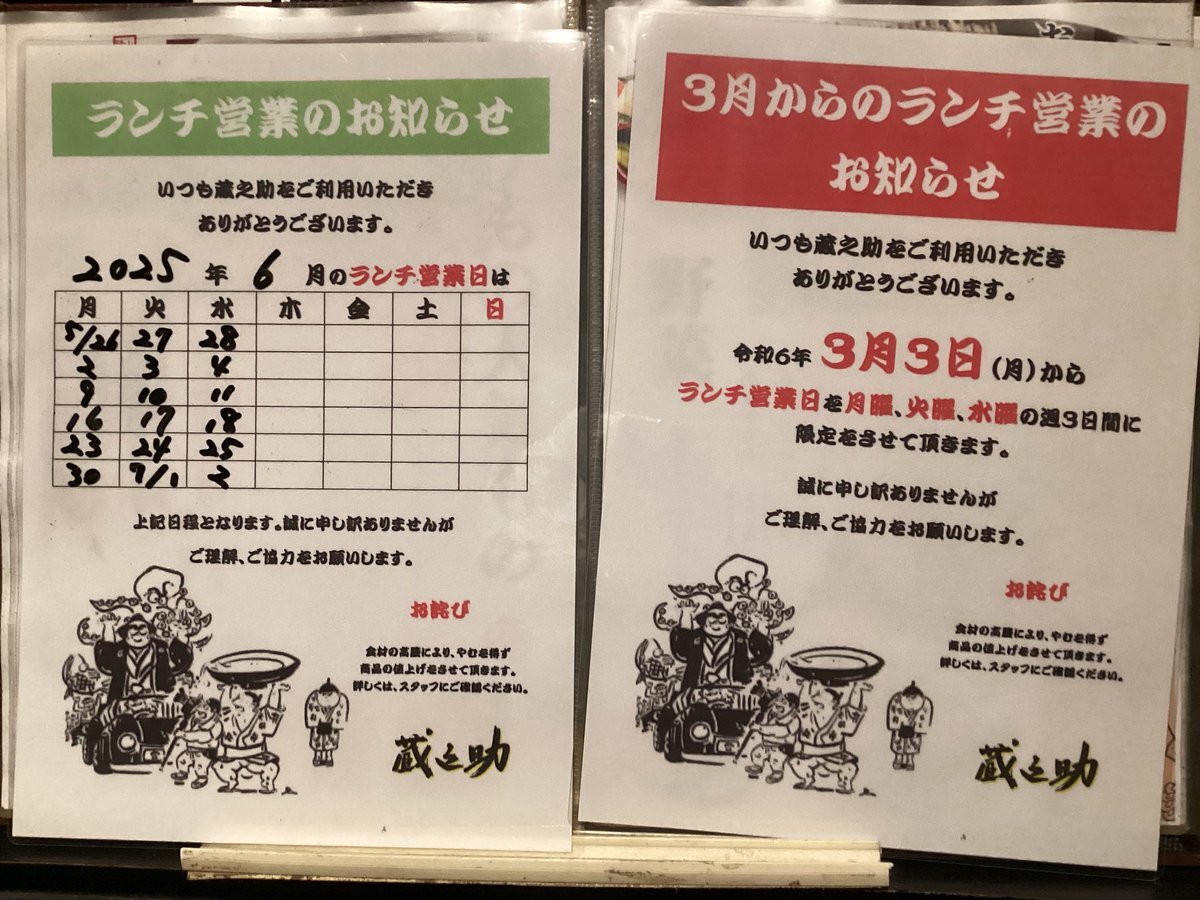 ランチ営業のお知らせ
いつも蔵之助をご利用いただき
ありがとうございます。
2025年6月のランチ営業日は
月 火 水 木 金 土 日
5/26 27 28
2 3 4
9 10 11
16 17 18
23 24 25
30 7/1 2
上記日程となります。誠に申し訳ありませんが
ご理解、ご協力をお願いします。
お詫び
食材の高騰により、やむを得ず
商品の値上げをさせて頂きます。
詳しくは、スタッフにご確認ください。
蔵之助
A
3月からのランチ営業の
お知らせ
いつも蔵之助をご利用いただき
ありがとうございます。
令和6年 3月3日(月)から
ランチ営業日を月曜、火曜、水曜の週3日間に
限定をさせて頂きます。
誠に申し訳ありませんが
ご理解、ご協力をお願いします。
お詫び
食材の高騰により、やむを得ず
商品の値上げをさせて頂きます。
詳しくは、スタッフにご確認ください。
蔵之助
A